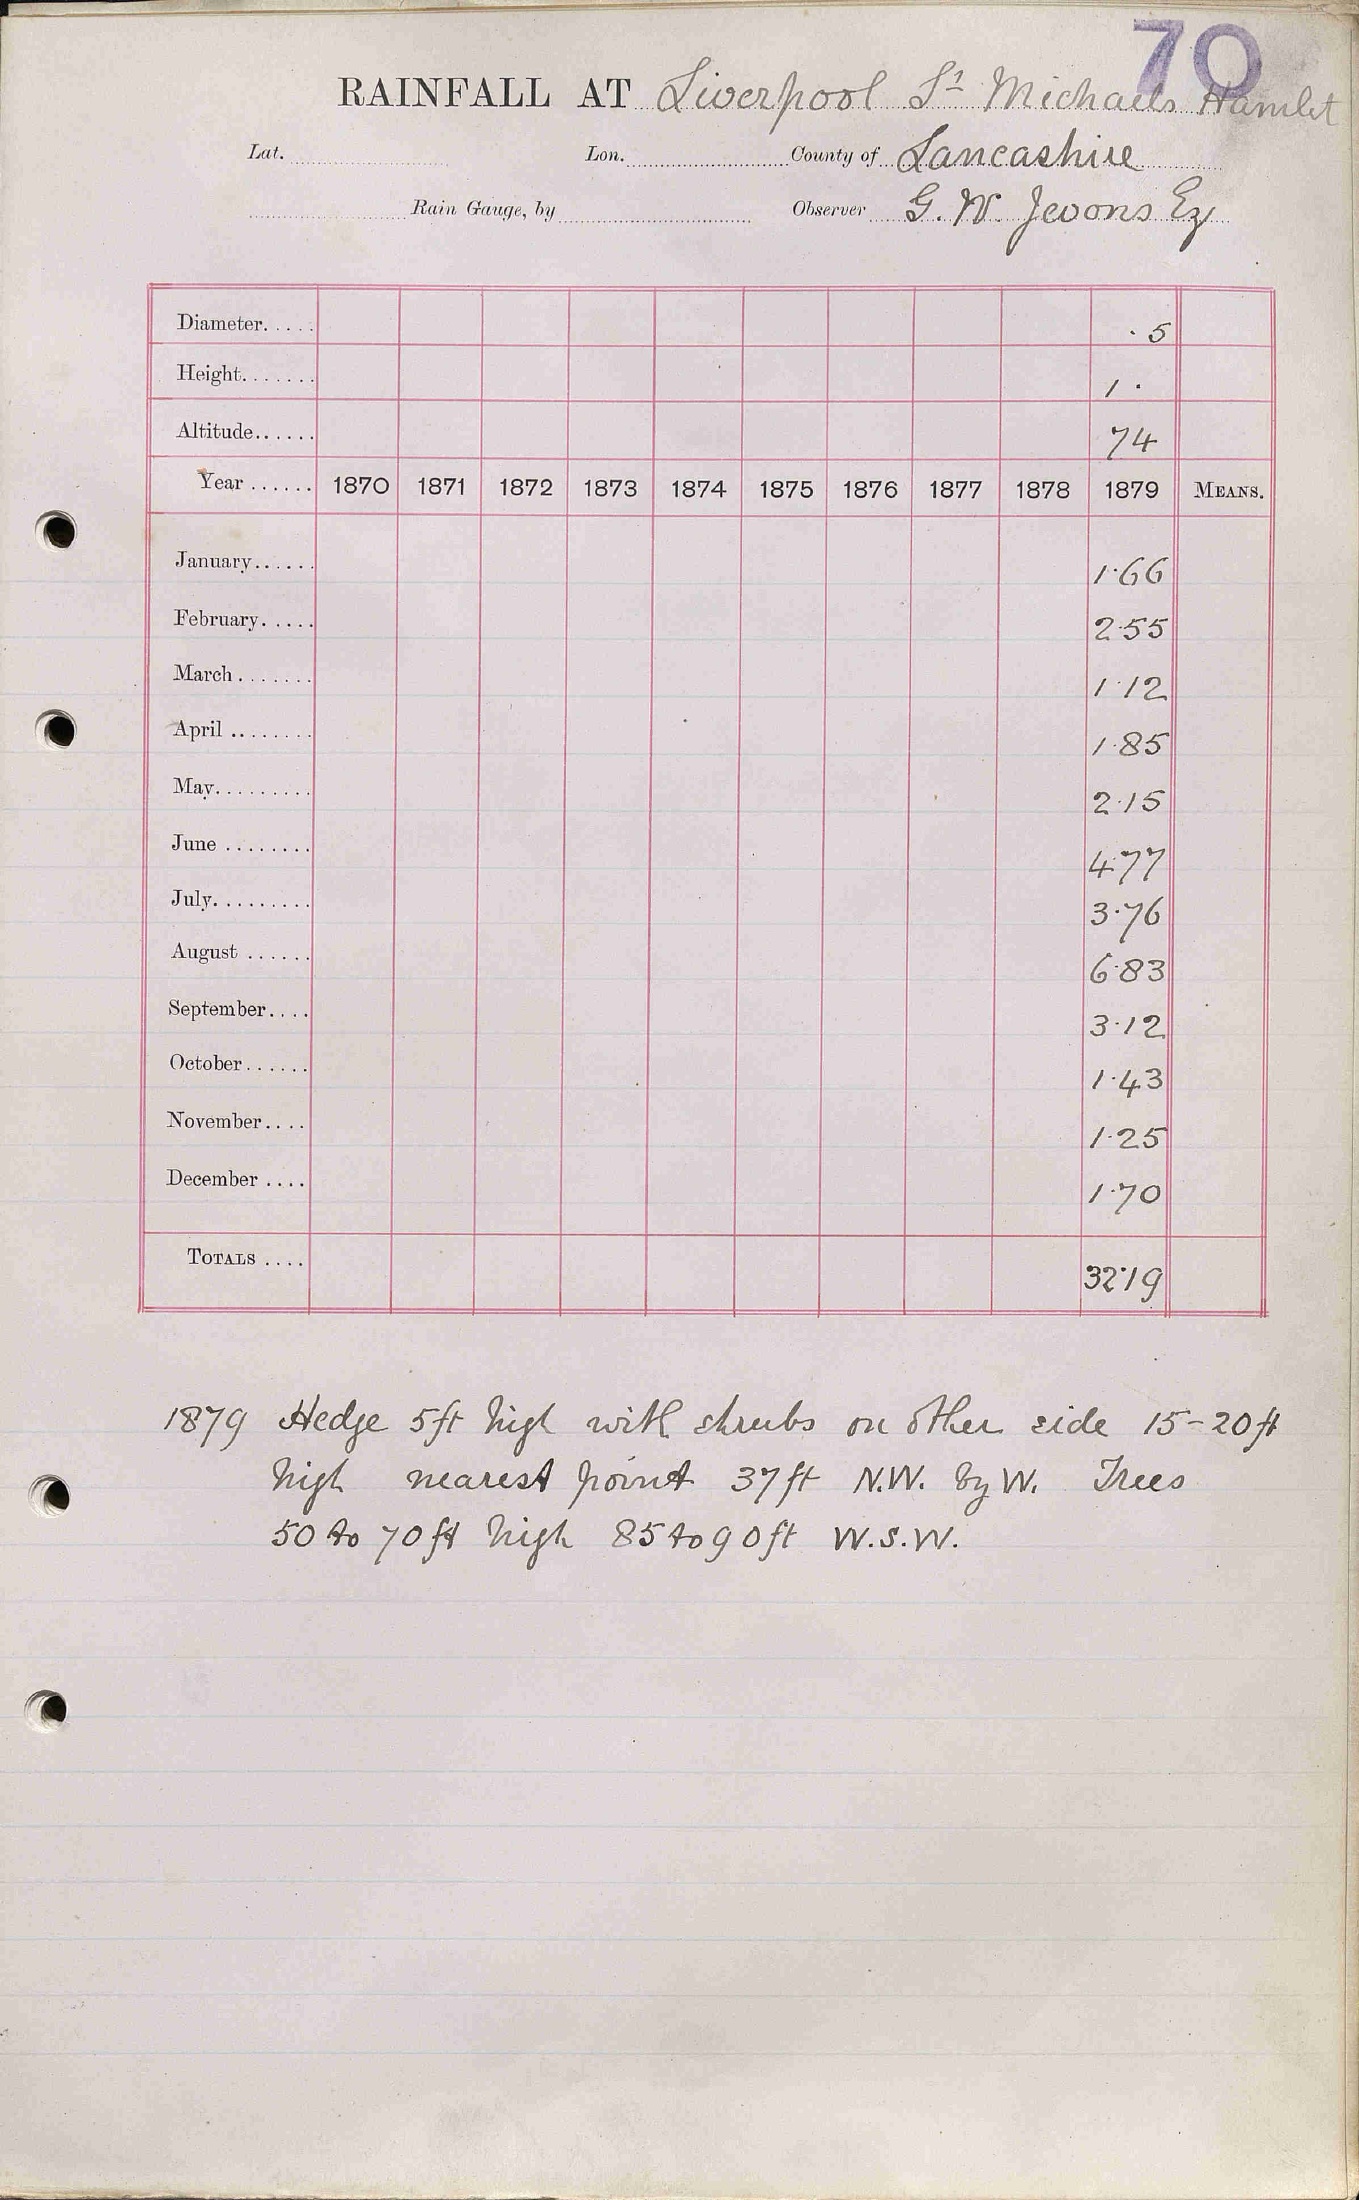 70
RAINFALL AT Liverpool St Michaels Hamlet
Lat. Lon. County of Lancashire
Rain Gauge, by Observer G. W. Jevons Esq
Diameter..... ·5
Height....... 1·
Altitude...... 74
Year ...... 1870 1871 1872 1873 1874 1875 1876 1877 1878 1879 MEANS.
January...... 1·66
February..... 2·55
March ....... 1·12
April ........ 1·85
May......... 2·15
June ........ 4·77
July......... 3·76
August ...... 6·83
September.... 3·12
October...... 1·43
November.... 1·25
December .... 1·70
TOTALS .... 32·19
1879 Hedge 5ft high with shrubs on other side 15-20ft
high nearest point 37ft N.W. by W. Trees
50 to 70ft high 85 to 90ft W.S.W.